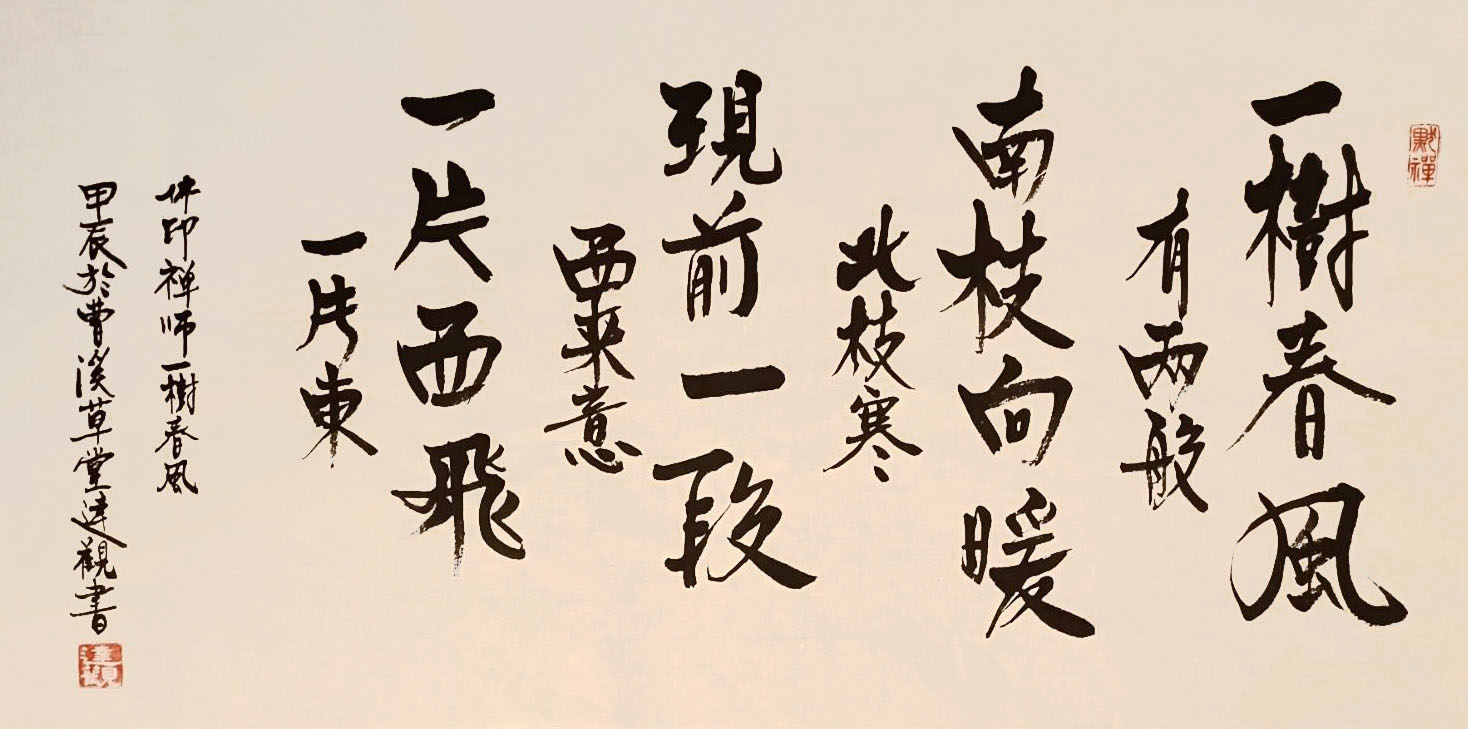 一樹春風
有兩般
南枝向暖
北枝寒
現前一段
西来意
一片西飛
一片東
佛印禅师一樹春風
甲辰於曹溪草堂達觀書
達觀